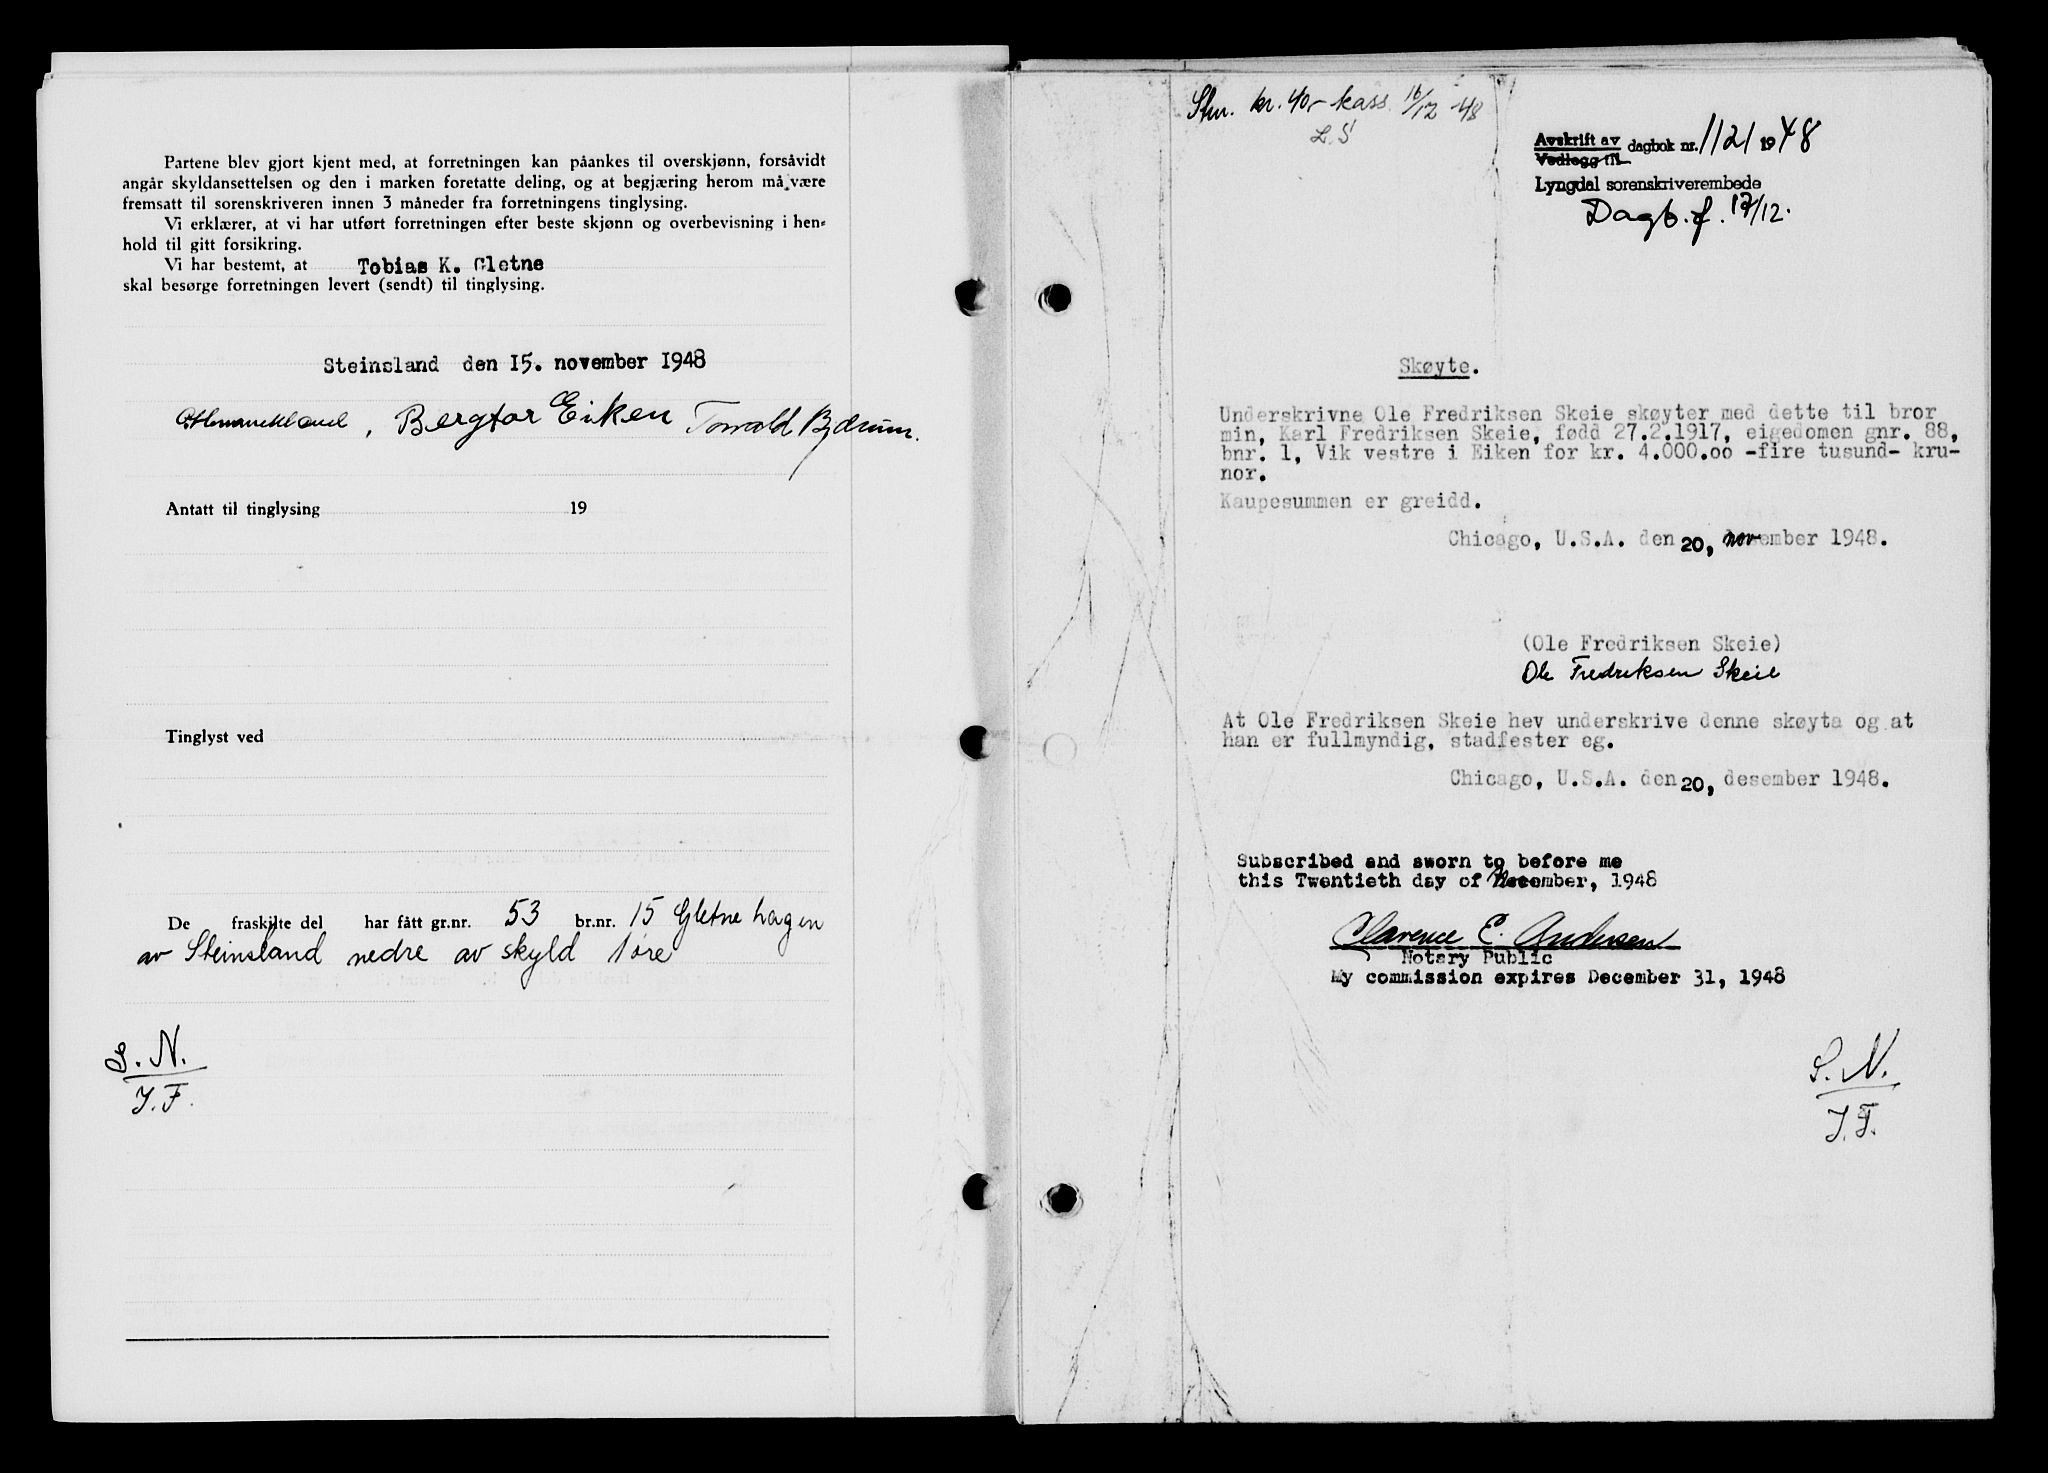 Partene blev gjort kjent med, at forretningen kan påankes til overskjønn, forsåvidt
angår skyldansettelsen og den i marken foretatte deling, og at begjæring herom må være
fremsatt til sorenskriveren innen 3 måneder fra forretningens tinglysing.
Vi erklærer, at vi har utført forretningen efter beste skjønn og overbevisning i hen-
hold til gitt forsikring.
Vi har bestemt, at Tobias K. Gletne
skal besørge forretningen levert (sendt) til tinglysing.
Steinsland den 15. november 1948
, Bergtor Eiken Torvald Bydrum.
Antatt til tinglysing 19
Tinglyst ved
De fraskilte del har fått gr.nr. 53 br.nr. 15 Gletnehagen
av Steinsland nedre av skyld 1 øre
S. N.
J. F.
Stm. kr. 40,- kass. 16/12 -48
L. S
Avskrift av
Vedlegg til dagbok nr. 1121 1948
Lyngdal sorenskriverembede
Dagb. f. 17/12.
Skøyte.
Underskrivne Ole Fredriksen Skeie skøyter med dette til bror
min, Karl Fredriksen Skeie, fødd 27.2.1917, eigedomen gnr. 88,
bnr. 1, Vik vestre i Eiken for kr. 4.000.oo -fire tusund- kru-
nor.
Kaupesummen er greidd.
Chicago, U.S.A. den 20, november 1948.
(Ole Fredriksen Skeie)
Ole Fredriksen Skeie
At Ole Fredriksen Skeie hev underskrive denne skøyta og at
han er fullmyndig, stadfester eg.
Chicago, U.S.A. den 20, desember 1948.
Subscribed and sworn to before me
this Twentieth day of November, 1948
Clarence E. Andersen
Notary Public
My commission expires December 31, 1948
S. N.
J. F.